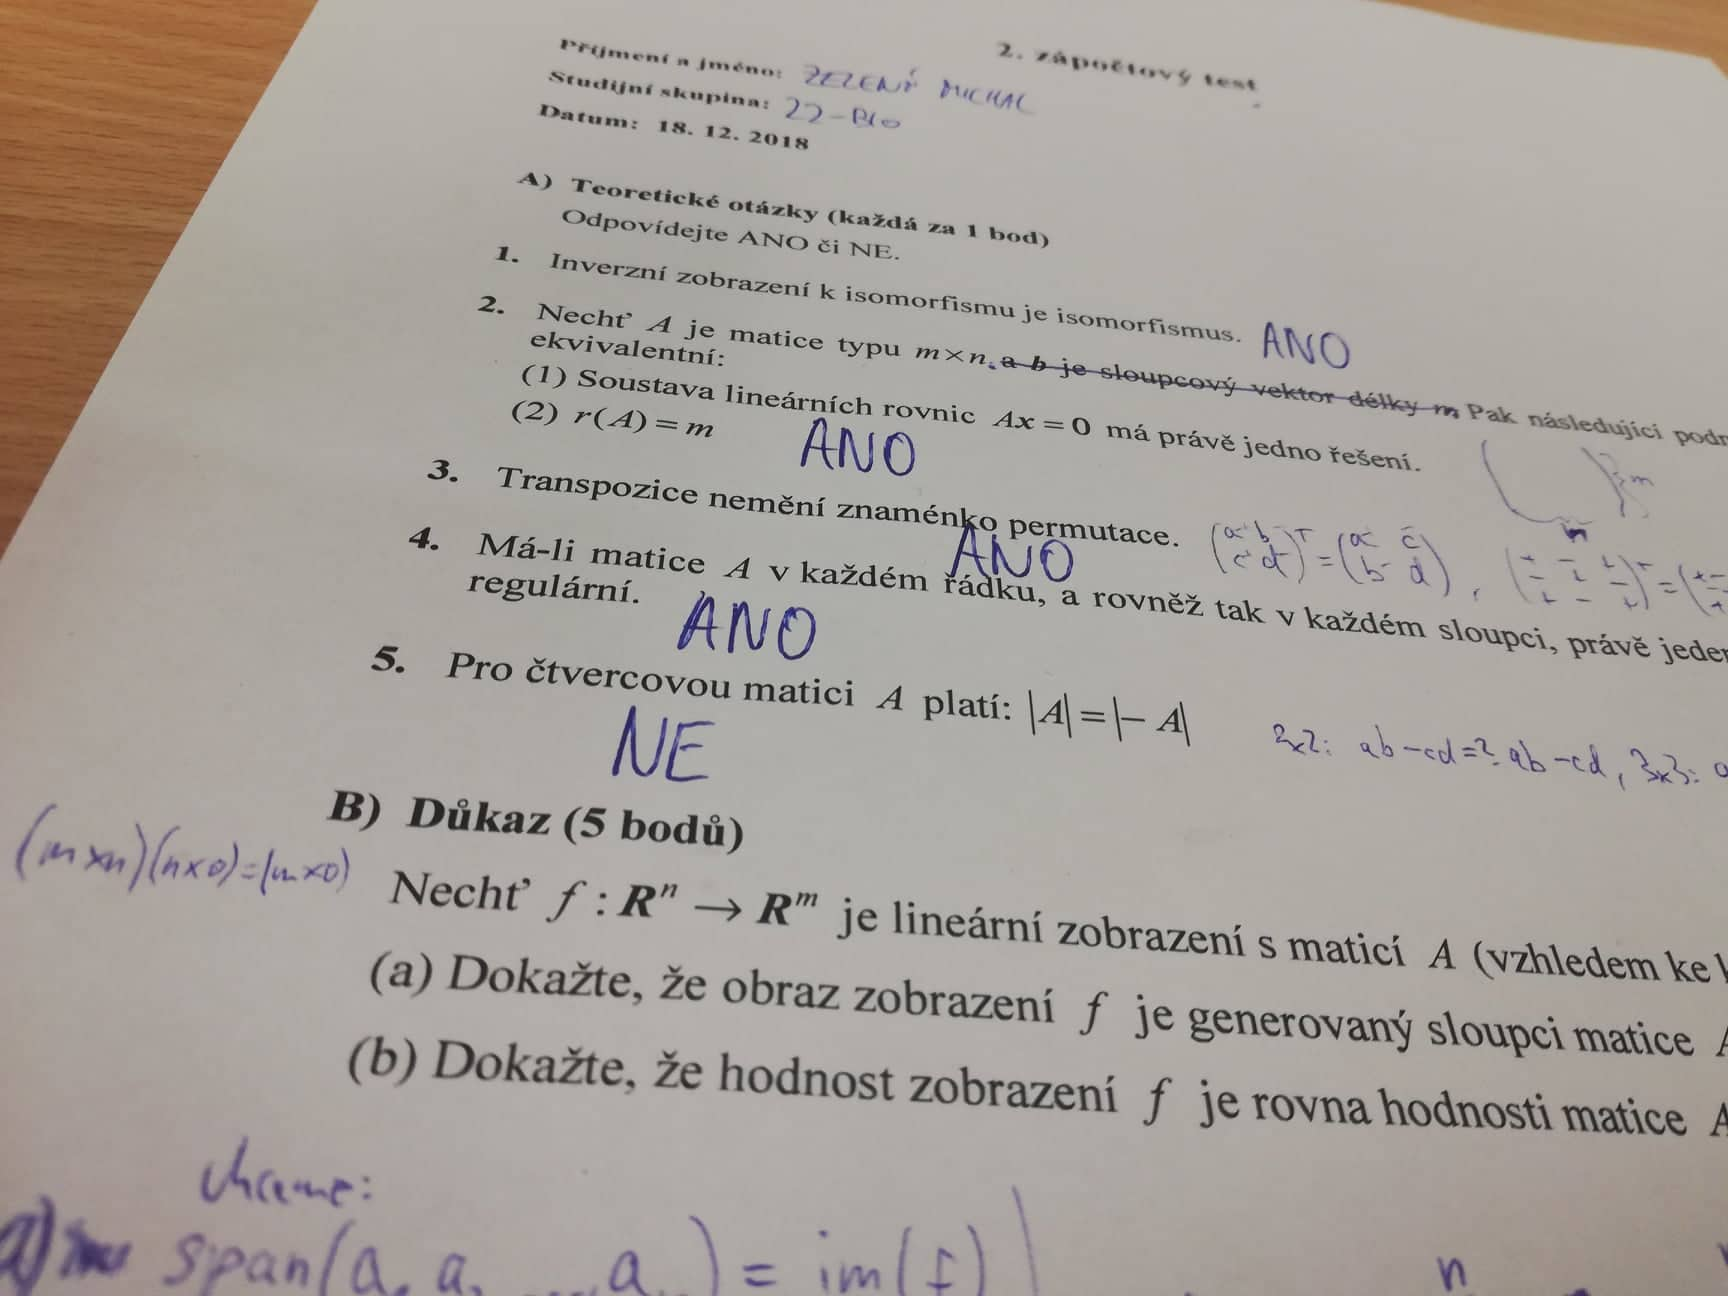 2. zápočtový test
Příjmení a jméno: ZELENÝ MICHAL
Studijní skupina: 22-BIO
Datum: 18. 12. 2018
A) Teoretické otázky (každá za 1 bod)
Odpovídejte ANO či NE.
1. Inverzní zobrazení k isomorfismu je isomorfismus. ANO
2. Nechť A je matice typu m×n. a b je sloupcový vektor délky m Pak následující podm
ekvivalentní:
(1) Soustava lineárních rovnic Ax = 0 má právě jedno řešení.
(2) r(A) = m ANO
m
n
3. Transpozice nemění znaménko permutace. ANO
(a b
c d)ᵀ = (a c
b d),
4. Má-li matice A v každém řádku, a rovněž tak v každém sloupci, právě jeden
regulární. ANO
5. Pro čtvercovou matici A platí: |A| = |− A|
NE
2x2: ab-cd=? ab-cd, 3x3: a
B) Důkaz (5 bodů)
(m×n)(n×o)=(m×o)
Nechť f : Rⁿ → Rᵐ je lineární zobrazení s maticí A (vzhledem ke
(a) Dokažte, že obraz zobrazení f je generovaný sloupci matice A
(b) Dokažte, že hodnost zobrazení f je rovna hodnosti matice A
chceme:
a) span(a, a, ..., a ) = im(f)
n